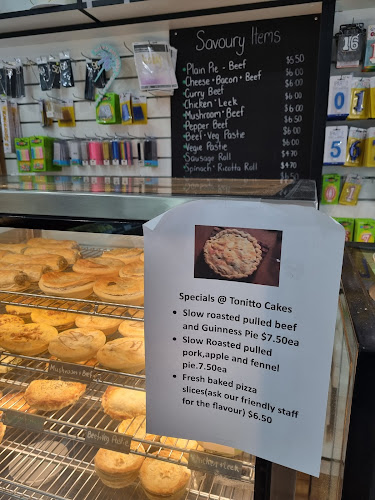 Savoury Items
Plain Pie - Beef $5.50
Cheese • Bacon • Beef $6.00
Curry Beef $6.00
Chicken • Leek $6.00
Mushroom • Beef $6.00
Pepper Beef $6.00
Beef • Veg Pastie $6.00
Vegie Pastie $6.00
Sausage Roll $4.70
Spinach • Ricotta Roll $4.70
$6.50
16
0
1
6
5
2
1
Specials @ Tonitto Cakes
• Slow roasted pulled beef
and Guinness Pie $7.50ea
• Slow Roasted pulled
pork,apple and fennel
pie.7.50ea
• Fresh baked pizza
slices(ask our friendly staff
for the flavour) $6.50
Mushroom • Beef
Beef • Veg Pastie
Chicken • Leek